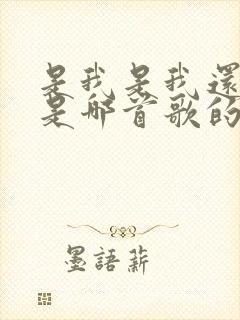 是我是我還
是那首歌的
墨語薪